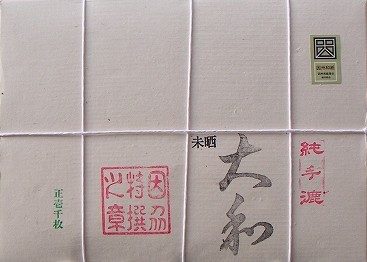 純手漉
大和
未晒
因州
特撰
之章
正壱千枚
因州和紙